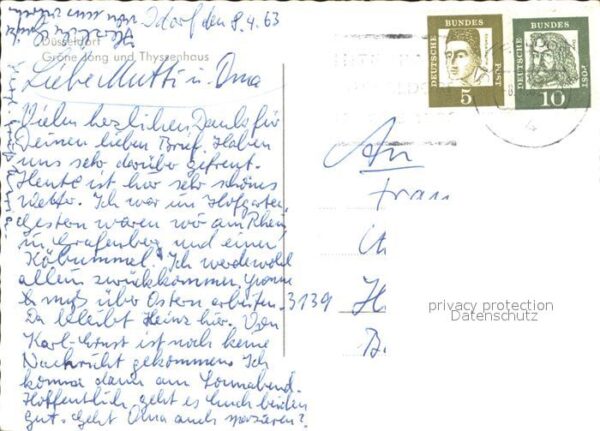 Ddorf den 8.4.63
Düsseldorf
Gröne Jong und Thyssenhaus
Liebe Mutti u. Oma
Vielen herzlichen Dank für
Deinen lieben Brief. Haben
uns sehr darüber gefreut.
Heute ist hier sehr schönes
Wetter. Ich war im Hofgarten,
Gestern waren wir am Rhein,
in Grafenberg und einen
Köbummel. Ich werde wohl
allein zurückkommen, Yvonne
muß über Ostern arbeiten.
Da bleibt Heinz hier. Von
Karl-Ernst ist noch keine
Nachricht gekommen. Ich
komme dann am Sonnabend.
Hoffentlich geht es Euch beiden
gut. Geht Oma auch spazieren?
DEUTSCHE BUNDESPOST
5
DEUTSCHE BUNDESPOST
10
An
Frau
3139 H
B.
privacy protection
Datenschutz